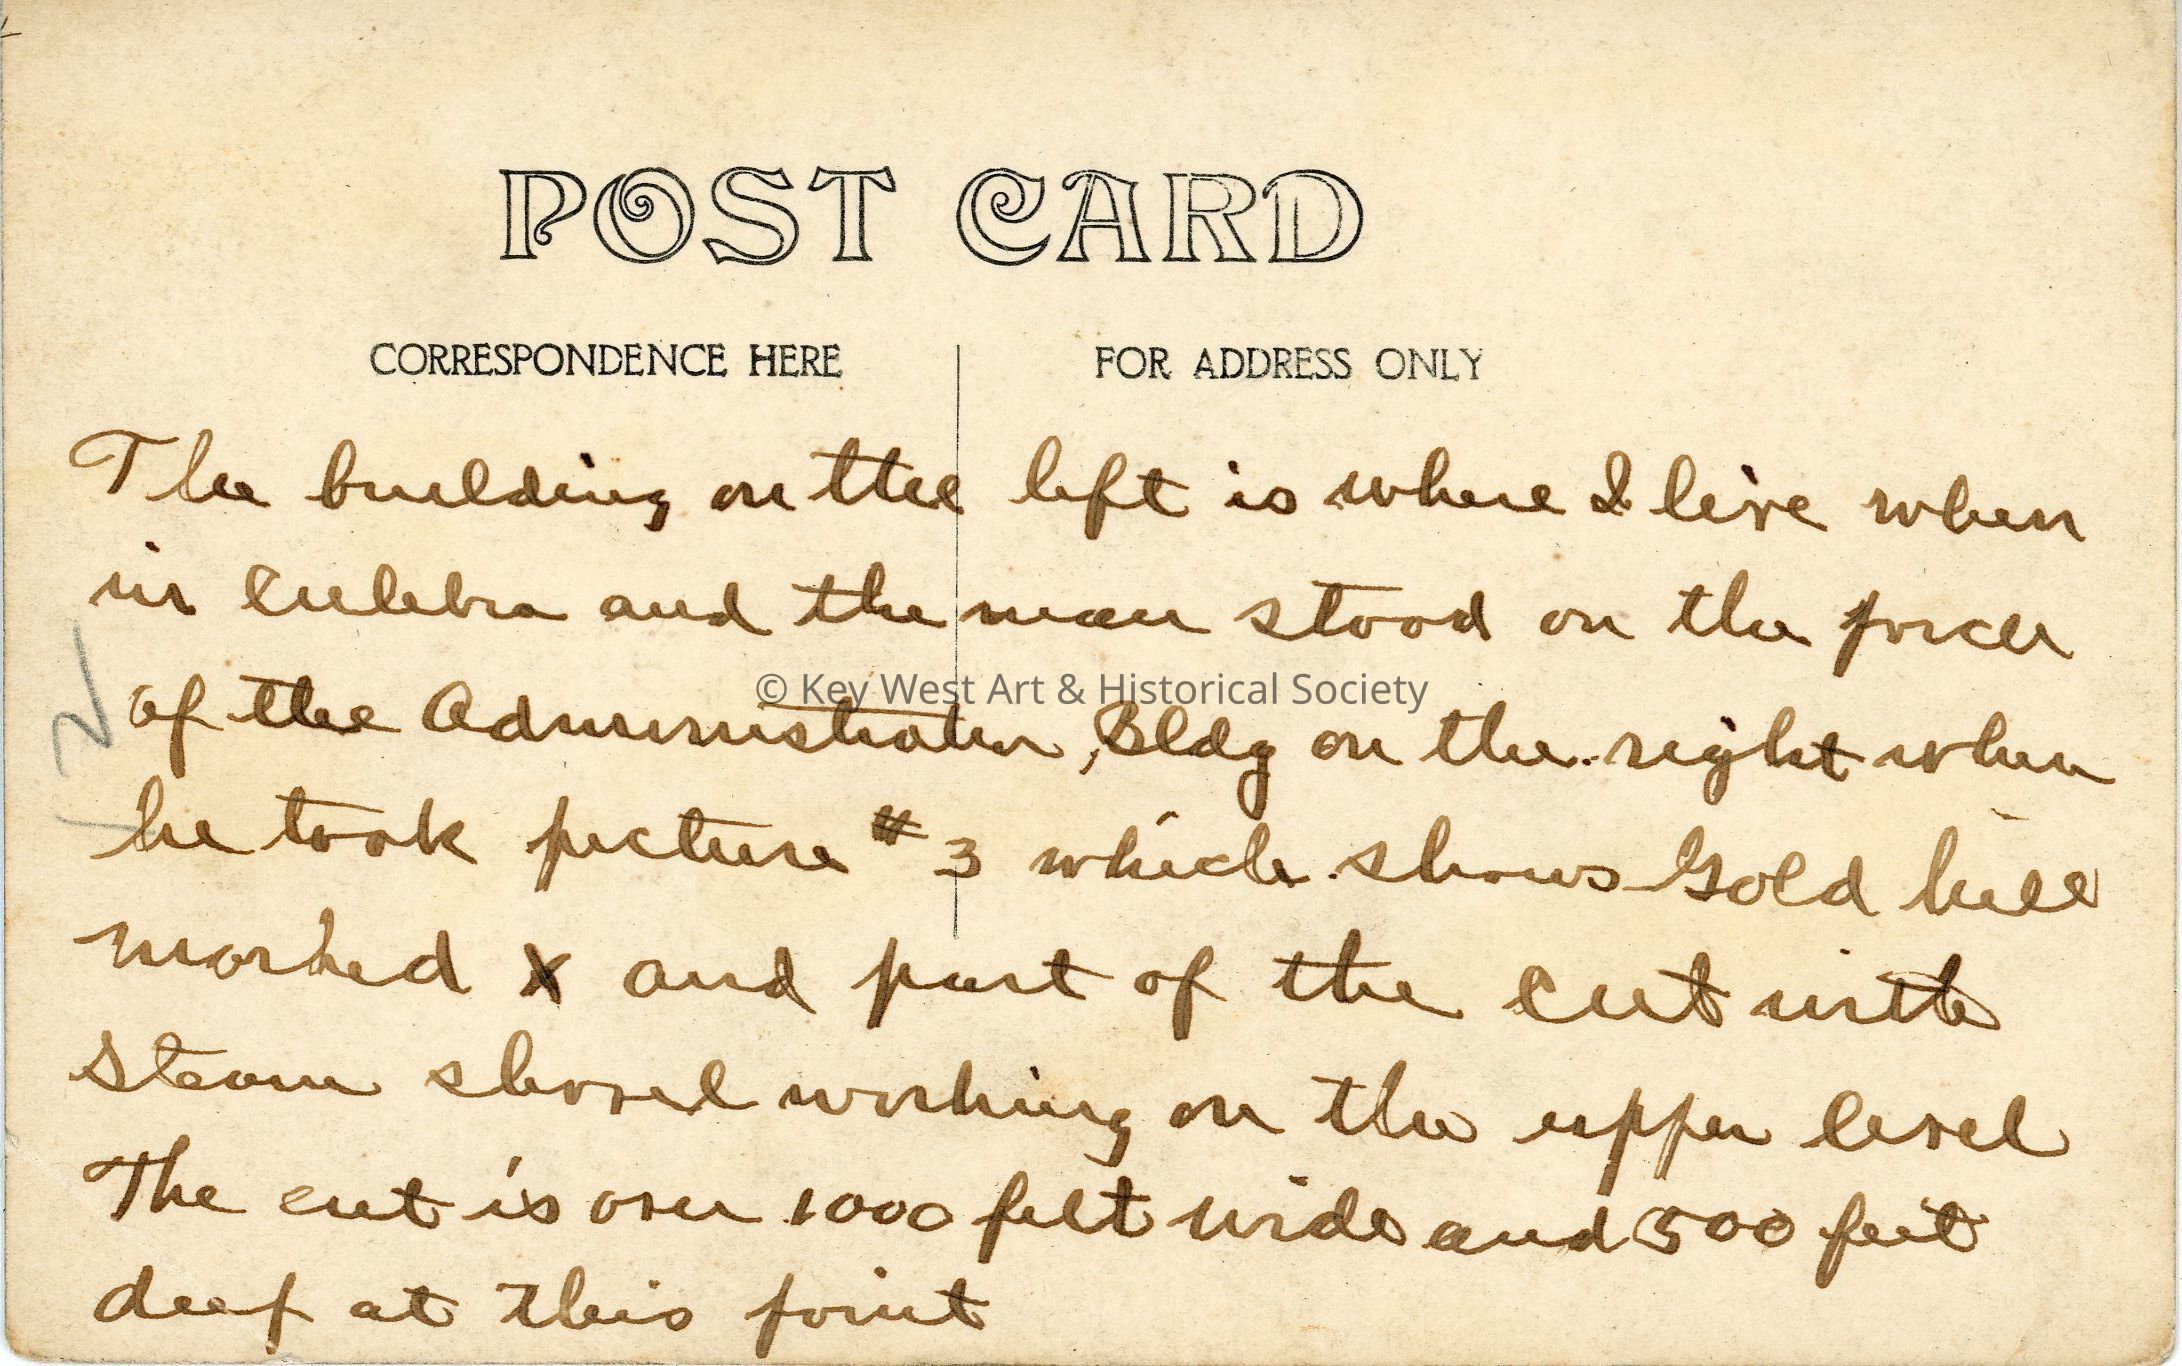 POST CARD
CORRESPONDENCE HERE
FOR ADDRESS ONLY
The building on the left is where I live when
in Culebra and the man stood on the porch
© Key West Art & Historical Society
of the Administration Bldg on the right when
he took picture # 3 which shows Gold hill
marked X and part of the cut with
steam shovel working on the upper level
The cut is over 1000 feet wide and 500 feet
deep at this point